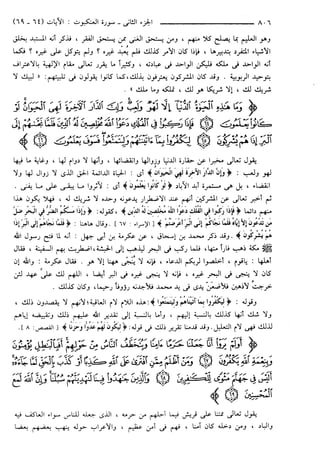 ٨٠٦ الجزء الثاني - سورة العنكبوت : الآيات (٦٤ - ٦٩)
وهو العليم بما يصلح كلا منهم ، ومن يستحق الغنى ممن يستحق الفقر ، فذكر أنه المستبد بخلق
الأشياء المتفرد بتدبيرها ، فإذا كان الأمر كذلك فلم يُعبد غيره ؟ ولم يتوكل على غيره ؟ فكما
أنه الواحد في ملكه فليكن الواحد في عبادته ، وكثيراً ما يقرر تعالى مقام الإلهية بالاعتراف
بتوحيد الربوبية . وقد كان المشركون يعترفون بذلك ، كما كانوا يقولون في تلبيتهم : « لبيك لا
شريك لك ، إلا شريكا هو لك ، تملكه وما ملك » .
﴿ وَمَا هَٰذِهِ الْحَيَاةُ الدُّنْيَا إِلَّا لَهْوٌ وَلَعِبٌ وَإِنَّ الدَّارَ الْآخِرَةَ لَهِيَ الْحَيَوَانُ لَوْ
كَانُوا يَعْلَمُونَ ۞ فَإِذَا رَكِبُوا فِي الْفُلْكِ دَعَوُا اللَّهَ مُخْلِصِينَ لَهُ الدِّينَ فَلَمَّا نَجَّاهُمْ إِلَى الْبَرِّ
إِذَا هُمْ يُشْرِكُونَ ۞ لِيَكْفُرُوا بِمَا آتَيْنَاهُمْ وَلِيَتَمَتَّعُوا فَسَوْفَ يَعْلَمُونَ ﴾
يقول تعالى مخبرا عن حقارة الدنيا وزوالها وانقضائها ، وأنها لا دوام لها ، وغاية ما فيها
لهو ولعب : ﴿ وَإِنَّ الدَّارَ الآخِرَةَ لَهِيَ الْحَيَوَانُ ﴾ أي : الحياة الدائمة الحق الذي لا زوال لها ولا
انقضاء ، بل هي مستمرة أبد الآباد ﴿ لَوْ كَانُوا يَعْلَمُونَ ﴾ أي : لآثروا ما يبقى على ما يفنى .
ثم أخبر تعالى عن المشركين أنهم عند الاضطرار يدعونه وحده لا شريك له ، فهلا يكون هذا
منهم دائما ﴿ فَإِذَا رَكِبُوا فِي الْفُلْكِ دَعَوُا اللَّهَ مُخْلِصِينَ لَهُ الدِّينَ ﴾ ، كقوله : ﴿ وَإِذَا مَسَّكُمُ الضُّرُّ فِي الْبَحْرِ ضَلَّ
مَن تَدْعُونَ إِلَّا إِيَّاهُ فَلَمَّا نَجَّاكُمْ إِلَى الْبَرِّ أَعْرَضْتُمْ ﴾ [الإسراء : ٦٧] . وقال هاهنا : ﴿ فَلَمَّا نَجَّاهُمْ إِلَى الْبَرِّ إِذَا
هُمْ يُشْرِكُونَ ﴾ . وقد ذكر محمد بن إسحاق ، عن عكرمة بن أبي جهل : أنه لما فتح رسول الله
مكة ذهب فاراً منها ، فلما ركب في البحر ليذهب إلى الحبشة ، اضطربت بهم السفينة ، فقال
أهلها : ياقوم ، أخلصوا لربكم الدعاء ، فإنه لا يُنجّي هاهنا إلا هو . فقال عكرمة : والله إن
كان لا ينجي في البحر غيره ، فإنه لا ينجي غيره في البر أيضا ، اللهم لك علي عهد لئن
خرجتُ لأذهبن فلأضعنّ يدي في يد محمد فلأجدنه رؤوفاً رحيما، وكان كذلك .
وقوله : ﴿ لِيَكْفُرُوا بِمَا آتَيْنَاهُمْ وَلِيَتَمَتَّعُوا ﴾ : هذه اللام لام العاقبة لأنهم لا يقصدون ذلك ،
ولا شك أنها كذلك بالنسبة إليهم ، وأما بالنسبة إلى تقدير الله عليهم ذلك وتقييضه إياهم
لذلك فهي لام التعليل. وقد قدمنا تقرير ذلك في قوله : ﴿ لِيَكُونَ لَهُمْ عَدُوّاً وَحَزَناً ﴾ [ القصص : ٨ ] .
﴿ أَوَلَمْ يَرَوْا أَنَّا جَعَلْنَا حَرَمًا آمِنًا وَيُتَخَطَّفُ النَّاسُ مِنْ حَوْلِهِمْ أَفَبِالْبَاطِلِ يُؤْمِنُونَ
وَبِنِعْمَةِ اللَّهِ يَكْفُرُونَ ۞ وَمَنْ أَظْلَمُ مِمَّنِ افْتَرَىٰ عَلَى اللَّهِ كَذِبًا أَوْ كَذَّبَ بِالْحَقِّ لَمَّا جَاءَهُ
أَلَيْسَ فِي جَهَنَّمَ مَثْوًى لِلْكَافِرِينَ ۞ وَالَّذِينَ جَاهَدُوا فِينَا لَنَهْدِيَنَّهُمْ سُبُلَنَا وَإِنَّ اللَّهَ لَمَعَ
الْمُحْسِنِينَ ﴾
يقول تعالى ممتنا على قريش فيما أحلهم من حرمه ، الذي جعله للناس سواء العاكف فيه
والباد ، ومن دخله كان آمنا ، فهم في أمن عظيم ، والأعراب حوله ينهب بعضهم بعضا